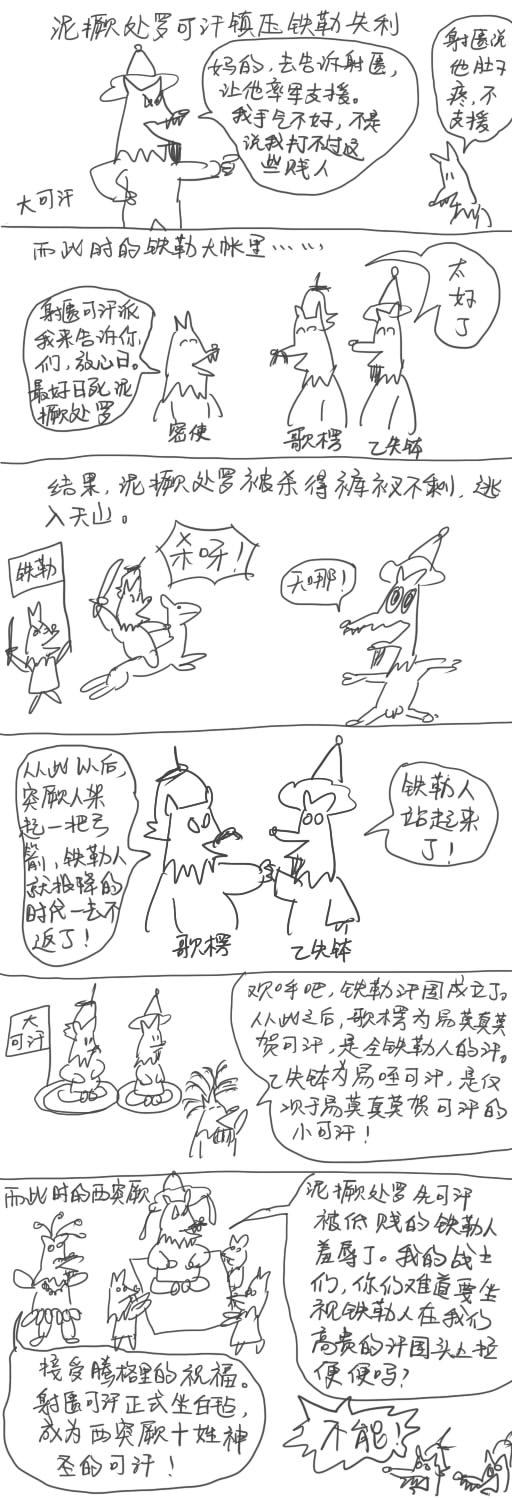 泥撅处罗可汗镇压铁勒失利
妈的,去告诉射匮,
让他率军支援。
我手气不好,不是
说我打不过这
些贱人
射匮说
他肚子
疼,不
支援
大可汗
而此时的铁勒大帐里……
射匮可汗派
我来告诉你
们,放心日。
最好日死泥
撅处罗
太
好
了
密使
歌楞
乙失钵
结果,泥撅处罗被杀得裤衩不剩,逃
入天山。
铁勒
杀呀!
天哪!
从此以后,
突厥人架
起一把弓
箭,铁勒人
就投降的
时代一去不
返了!
铁勒人
站起来
了!
歌楞
乙失钵
大
可汗
欢呼吧,铁勒汗国成立了。
从此之后,歌楞为易莫真莫
贺可汗,是全铁勒人的汗。
乙失钵为易咥可汗,是仅
次于易莫真莫贺可汗的
小可汗!
而此时的西突厥
泥撅处罗先可汗
被低贱的铁勒人
羞辱了。我的战士
们,你们难道要坐
视铁勒人在我们
高贵的汗国头上拉
便便吗?
接受腾格里的祝福。
射匮可汗正式坐白毡,
成为西突厥十姓神
圣的可汗!
不能!